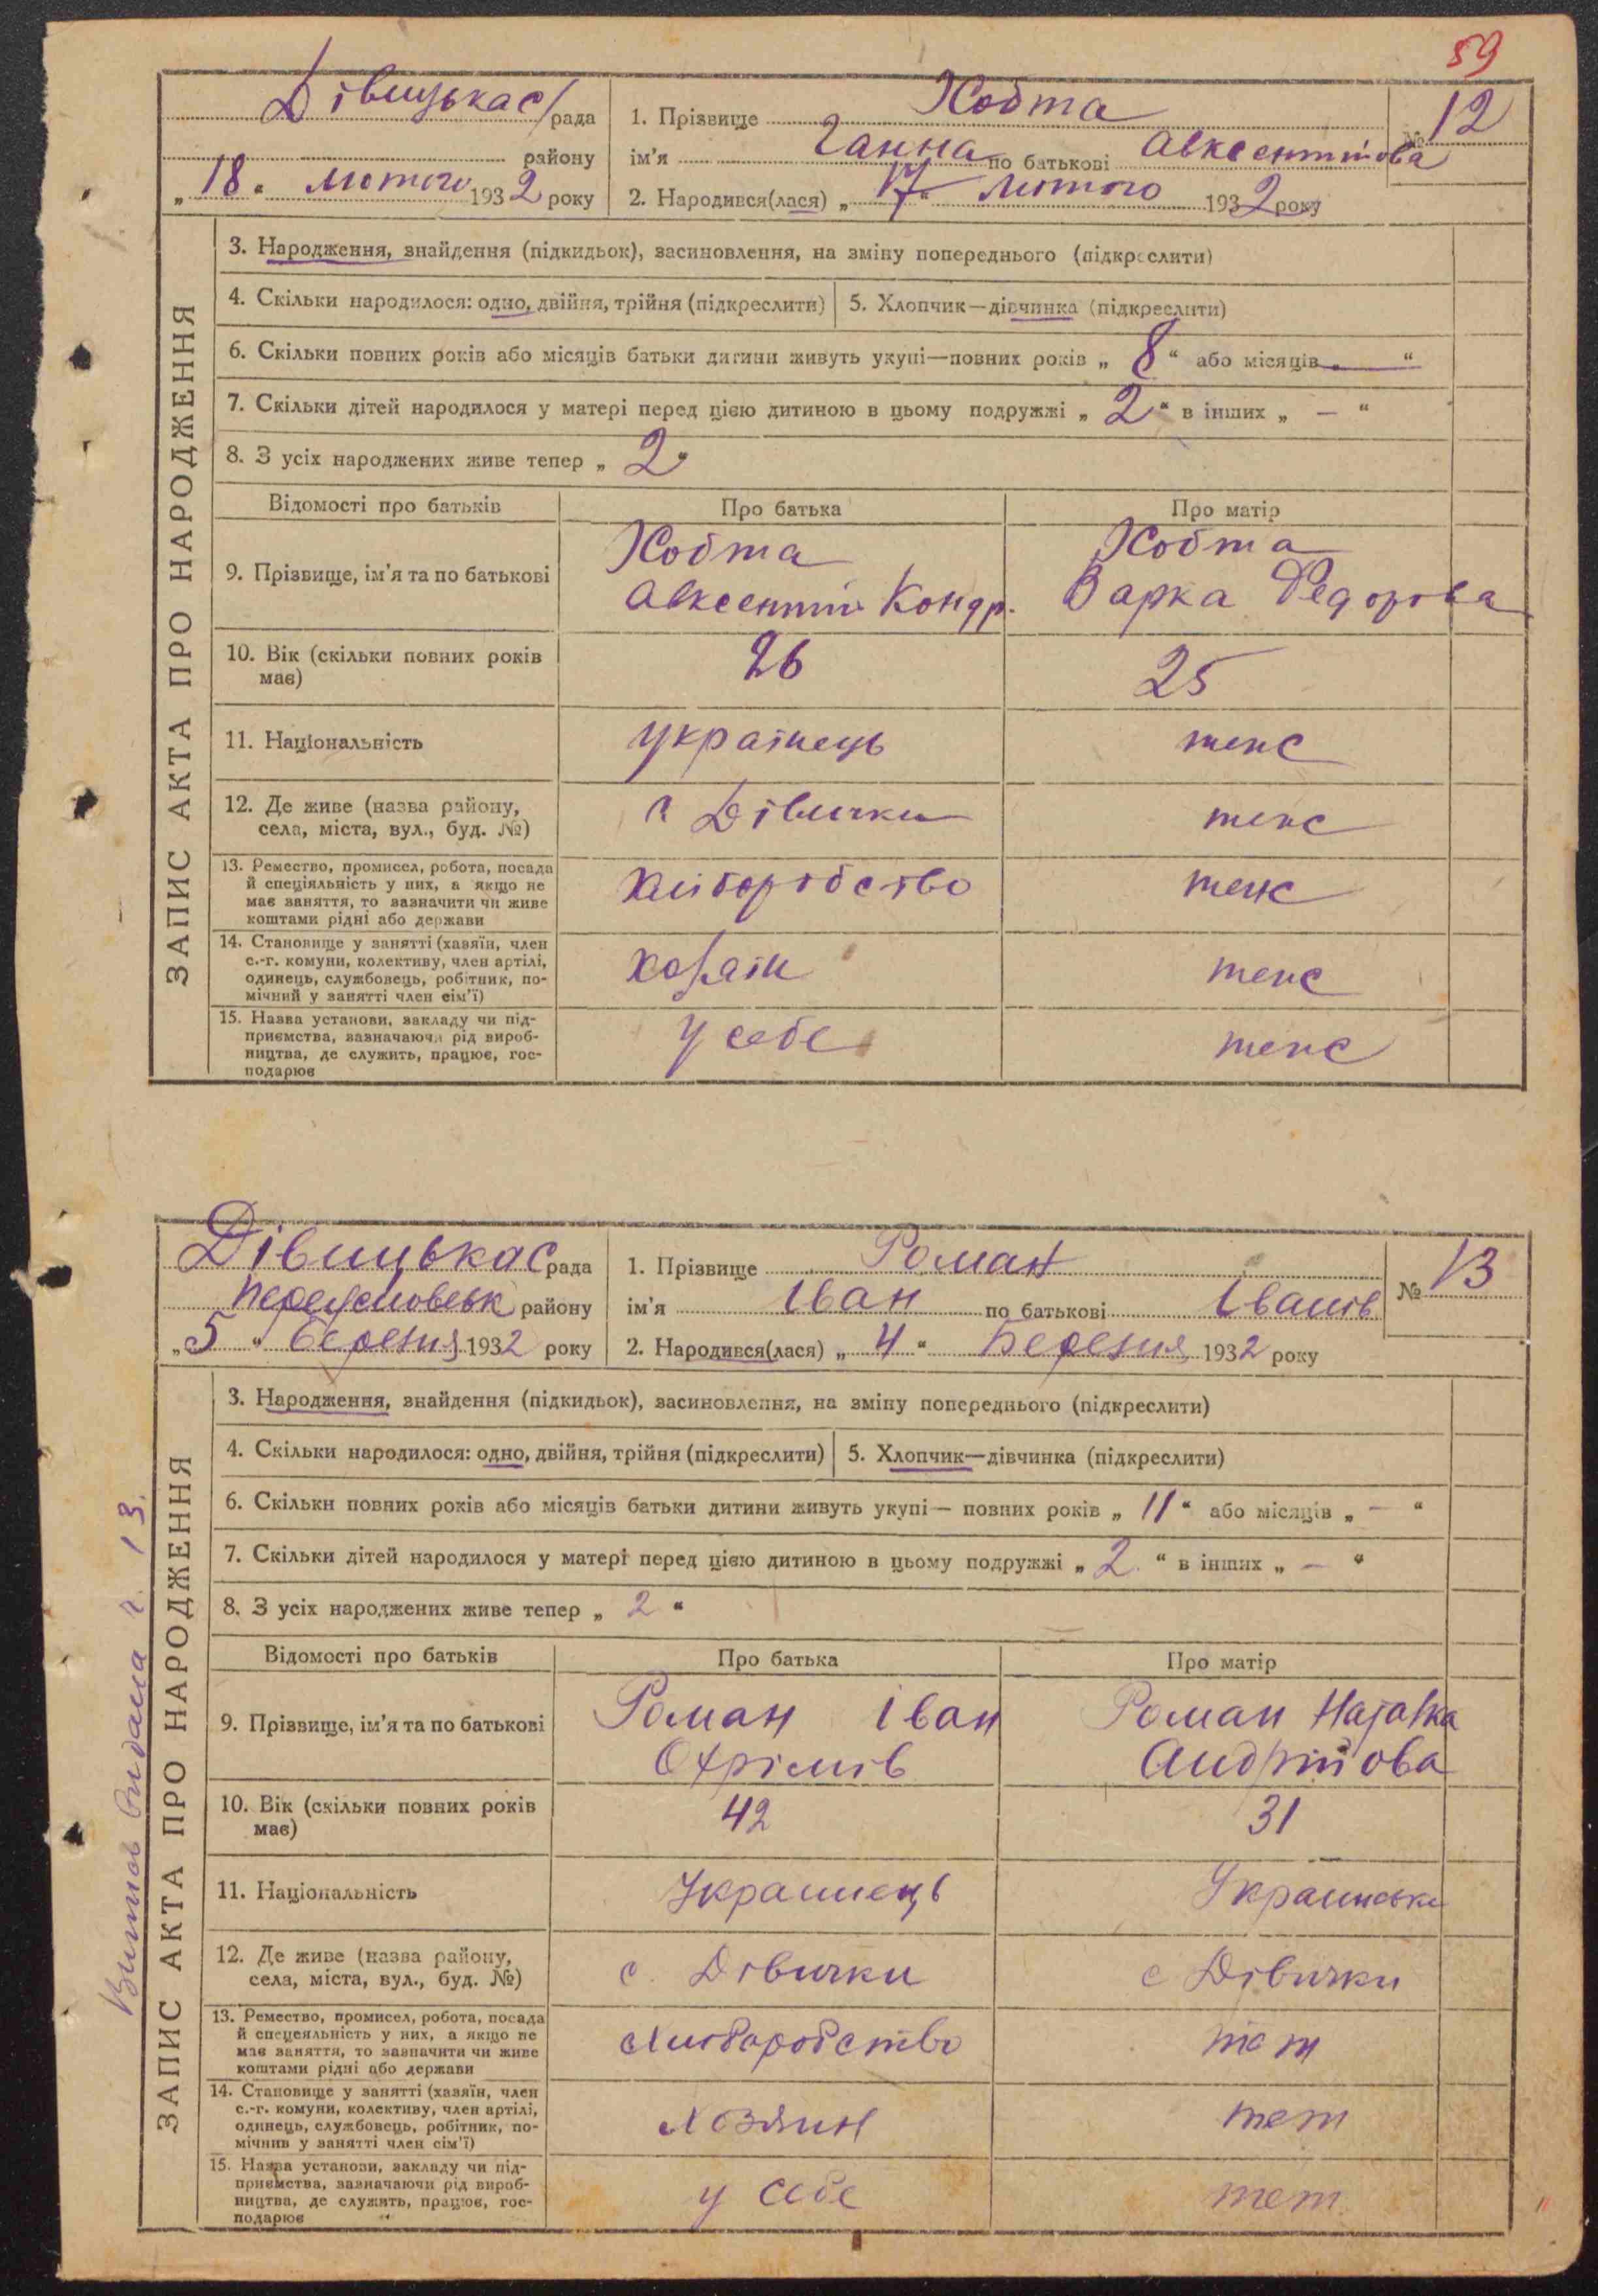 59
Дівицька с/рада
района
"18" лютого 1932 року
1. Прізвище Кобта
ім'я Ганна по батькові Авксентіїова
2. Народився(лася) "17" лютого 1932 року
№ 12
ЗАПИС АКТА ПРО НАРОДЖЕННЯ
3. Народження, знайдення (підкидьок), засиновлення, на зміну попереднього (підкреслити)
4. Скільки народилося: одно, двійня, трійня (підкреслити)
5. Хлопчик—дівчинка (підкреслити)
6. Скільки повних років або місяців батьки дитини живуть укупі—повних років "8" або місяців „—“
7. Скільки дітей народилося у матері перед цією дитиною в цьому подружжі "2" в інших „—“
8. З усіх народжених живе тепер "2"
Відомості про батьків
Про батька
Про матір
9. Прізвище, ім'я та по батькові
Кобта
Авксентій Кондр.
Кобта
Варка Федорова
10. Вік (скільки повних років має)
26
25
11. Національність
українець
теж
12. Де живе (назва району, села, міста, вул., буд. №)
с Дівички
теж
13. Ремество, промисел, робота, посада й спеціяльність у них, а якщо не має заняття, то зазначити чи живе коштами рідні або держави
хліборобство
теж
14. Становище у занятті (хавяїн, член с.-г. комуни, колективу, член артілі, одинець, службовець, робітник, помічний у занятті член сім'ї)
теж
15. Назва установи, закладу чи підприємства, зазначаючи рід виробництва, де служить, працює, господарює
у себе
теж
Дівицька с рада
району
"5" березня 1932 року
1. Прізвище Роман
ім'я Іван по батькові Іванів
2. Народився(лася) "4" березня 1932 року
№ 13
ЗАПИС АКТА ПРО НАРОДЖЕННЯ
3. Народження, знайдення (підкидьок), засиновлення, на зміну попереднього (підкреслити)
4. Скільки народилося: одно, двійня, трійня (підкреслити)
5. Хлопчик—дівчинка (підкреслити)
6. Скільки повних років або місяців батьки дитини живуть укупі— повних років "11" або місяців „—“
7. Скільки дітей народилося у матері перед цією дитиною в цьому подружжі "2" в інших „—“
8. З усіх народжених живе тепер "2"
Відомості про батьків
Про батька
Про матір
9. Прізвище, ім'я та по батькові
Роман Іван
Охрімів
Роман Наталка
Андрійова
10. Вік (скільки повних років має)
42
31
11. Національність
Украинець
Украинська
12. Де живе (назва району, села, міста, вул., буд. №)
с. Дівички
с Дівички
13. Ремество, промисел, робота, посада й спецеяльність у них, а якщо не має заняття, то зазначити чи живе коштами рідні або держави
Хліборобство
14. Становище у занятті (хавяїн, член с.-г. комуни, колективу, член артілі, одинець, службовець, робітник, помічнив у занятті член сім'ї)
Хозяин
теж
15. Назва установи, закладу чи підприємства, зазначаючи рід виробництва, де служить, працює, господарює
у себе
теж
13.